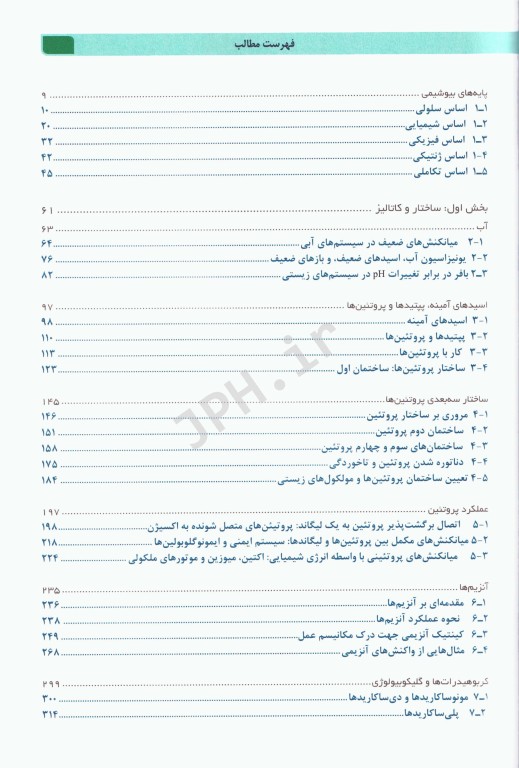 فهرست مطالب
پایه‌های بیوشیمی ۹
۱ـ۱ اساس سلولی ۱۰
۲ـ۱ اساس شیمیایی ۲۰
۳ـ۱ اساس فیزیکی ۳۲
۴-۱ اساس ژنتیکی ۴۲
۵ـ۱ اساس تکاملی ۴۵
بخش اول: ساختار و کاتالیز ۶۱
آب ۶۳
۲-۱ میانکنش‌های ضعیف در سیستم‌های آبی ۶۴
۲-۲ یونیزاسیون آب، اسیدهای ضعیف، و بازهای ضعیف ۷۶
۳ـ۲ بافر در برابر تغییرات pH در سیستم‌های زیستی ۸۲
اسیدهای آمینه، پپتیدها و پروتئین‌ها ۹۷
۳-۱ اسیدهای آمینه ۹۸
۳-۲ پپتیدها و پروتئین‌ها ۱۱۰
۳-۳ کار با پروتئین‌ها ۱۱۳
۳-۴ ساختار پروتئین‌ها: ساختمان اول ۱۲۳
ساختار سه‌بعدی پروتئین‌ها ۱۴۵
۴-۱ مروری بر ساختار پروتئین ۱۴۶
۴-۲ ساختمان دوم پروتئین ۱۵۱
۴-۳ ساختمان‌های سوم و چهارم پروتئین ۱۵۸
۴-۴ دناتوره شدن پروتئین و تاخوردگی ۱۷۵
۴-۵ تعیین ساختمان پروتئین‌ها و مولکول‌های زیستی ۱۸۴
عملکرد پروتئین ۱۹۷
۵-۱ اتصال برگشت‌پذیر پروتئین به یک لیگاند: پروتیئن‌های متصل شونده به اکسیژن ۱۹۸
۵-۲ میانکنش‌های مکمل بین پروتئین‌ها و لیگاندها: سیستم ایمنی و ایمونوگلوبولین‌ها ۲۱۸
۵-۳ میانکنش‌های پروتئینی با واسطه انرژی شیمیایی: اکتین، میوزین و موتورهای ملکولی ۲۲۴
آنزیم‌ها ۲۳۵
۱ـ۶ مقدمه‌ای بر آنزیم‌ها ۲۳۶
۲ـ۶ نحوه عملکرد آنزیم‌ها ۲۳۸
۳ـ۶ کینتیک آنزیمی جهت درک مکانیسم عمل ۲۴۹
۴ـ۶ مثال‌هایی از واکنش‌های آنزیمی ۲۶۸
کربوهیدرات‌ها و گلیکوبیولوژی ۲۹۹
۱ـ۷ مونوساکاریدها و دی‌ساکاریدها ۳۰۰
۲ـ۷ پلی‌ساکاریدها ۳۱۴
JPH.ir